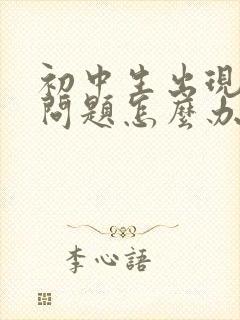 初中生出現
問題怎麼办
李心語